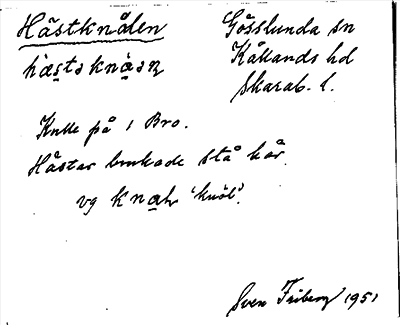 Hästknålen
Gösslunda sn
hæstəknąɔn
Kållands hd
Skarab. l.
Kulle på 1 Bro.
Hästar brukade stå här.
vg knąɔ 'knöl'.
Sven Friberg 1951